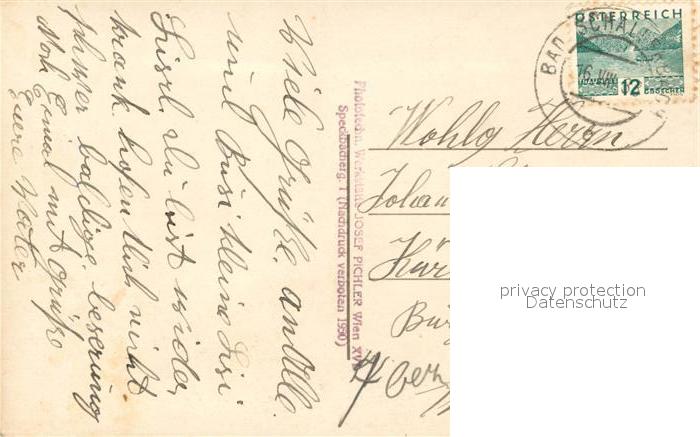 Viele Grüße an Alle
und Busi kleine Lisi
Liserl. du bist wieder
krank. hofendlich nicht
schwer baldige beserung
Noch Eimal mit grüße
Euere Mater
Phototechn. Werkstätte JOSEF PICHLER Wien XVI
Speckbacherg. 1 (Nachdruck verboten 1930)
ÖSTERREICH
12 GROSCHEN
BAD SCHAL
16. VIII
Wohlg Herrn
Johan
privacy protection
Datenschutz